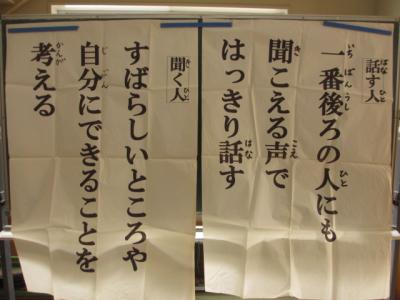 話す人
一番後ろの人にも
聞こえる声で
はっきり話す
聞く人
すばらしいところや
自分にできることを
考える